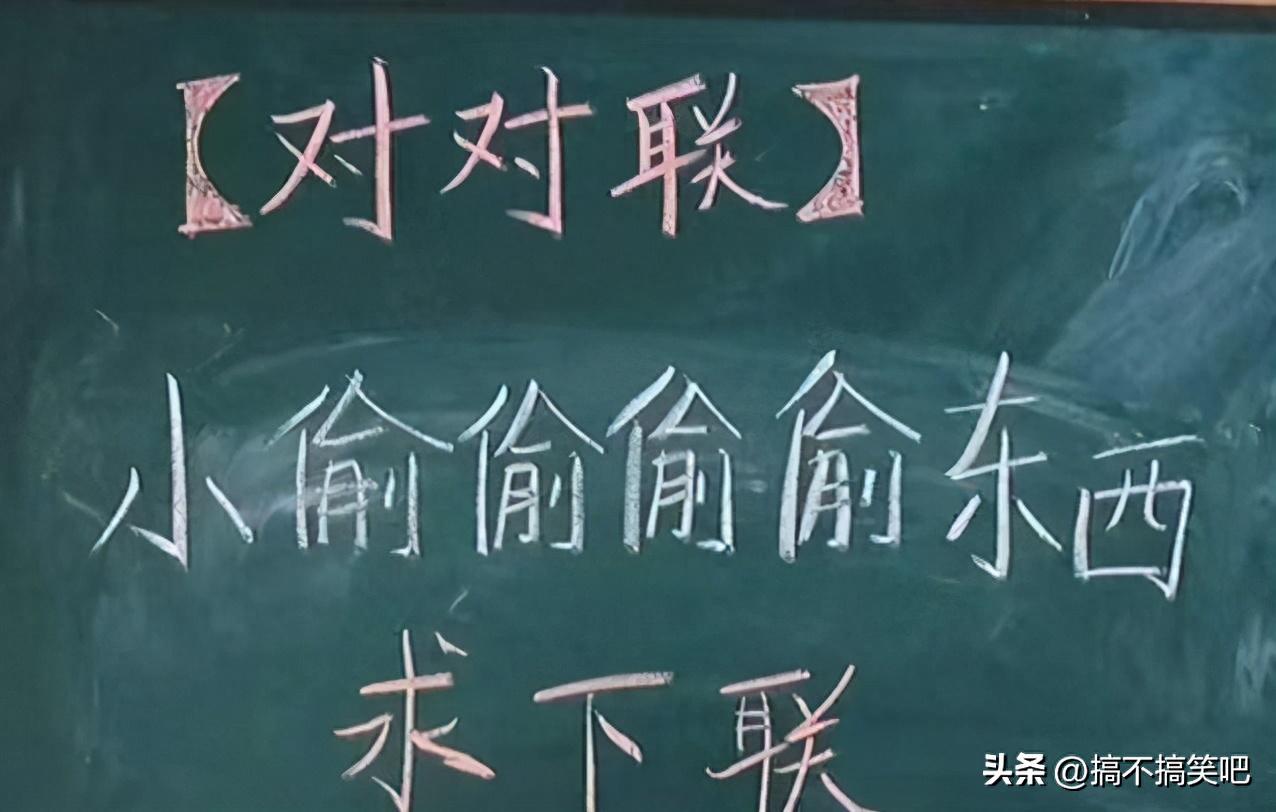 【对对联】
小偷偷偷偷东西
求下联
头条 @搞不搞笑吧